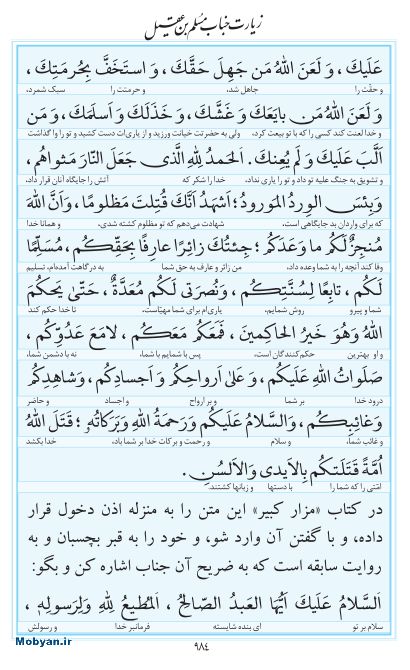 زیارت جناب مسلم بن عقیل
عَلَيكَ ، وَ لَعَنَ اللهُ مَن جَهِلَ حَقَّكَ ، وَ استَخَفَّ بِحُرمَتِكَ ،
و حقّت را جاهل شد، و حرمتت را سبک شمرد،
وَ لَعَنَ اللهُ مَن بايَعَكَ وَ غَشَّكَ ، وَ خَذَلَكَ وَ اَسلَمَكَ ، وَ مَن
و خدا لعنت کند کسی را که با تو بیعت کرد، ولی به حضرتت خیانت ورزید و از یاری‌ات دست کشید و تو را وا گذاشت
اَلَّبَ عَلَيكَ وَ لَم يُعِنكَ . اَلحَمدُ لِلّهِ الَّذي جَعَلَ النّارَ مَثواهُم ،
و تشویق به جنگ علیه تو داد و تو را یاری نداد. خدا را شکر که آتش را جایگاه آنان قرار داد،
وَبِئسَ الوِردُ المَورودُ؛ اَشهَدُ اَنَّكَ قُتِلتَ مَظلومًا، وَاَنَّ اللهَ
که برای واردان بد جایگاهی است. شهادت می‌دهم که تو مظلوم کشته شدی، و همانا خدا
مُنجِزٌ لَكُم ما وَعَدَكُم ؛ جِئتُكَ زائِرًا عارِفًا بِحَقِّكُم، مُسَلِّمًا
وفا کند آنچه را به شما وعده داد، من زائر و عارف به حق شما به در گاهت آمده‌ام، تسلیم
لَكُم ، تابِعًا لِسُنَّتِكُم ، وَنُصرَتي لَكُم مُعَدَّةٌ، حَتّىٰ يَحكُمَ
شما و پیرو روش شمایم، یاری‌ام برای شما مهیّاست، تا خدا حکم کند
اللهُ وَهُوَ خَيرُ الحاكِمينَ ، فَمَعَكُم مَعَكُم ، لامَعَ عَدُوِّكُم ،
و او بهترین حکم‌کنندگان است، پس با شمایم با شما، نه با دشمن شما،
صَلَواتُ اللهِ عَلَيكُم ، وَعَلىٰ اَرواحِكُم وَ اَجسادِكُم ، وَشاهِدِكُم
درود خدا بر شما و بر ارواح و اجساد و حاضر
وَغائِبِكُم ، وَالسَّلامُ عَلَيكُم وَرَحمَةُ اللهِ وَبَرَكاتُهُ ؛ قَتَلَ اللهُ
و غائب شما، و سلام و رحمت و برکات خدا بر شما باد، خدا بکشد
اُمَّةً قَتَلَتكُم بِالاَيدي وَالاَلسُنِ .
امّتی را که شما را با دستها و زبانها کشتند.
در کتاب «مزار کبیر» این متن را به منزله اذن دخول قرار
داده، و با گفتن آن وارد شو، و خود را به قبر بچسبان و به
روایت سابقه است که به ضریح آن جناب اشاره کن و بگو:
اَلسَّلامُ عَلَيكَ اَيُّهَا العَبدُ الصّالِحُ ، اَلمُطيعُ لِلّهِ وَلِرَسولِهِ ،
سلام بر تو ای بنده شایسته فرمانبر خدا و رسولش
۹۸۴
Mobyan.ir